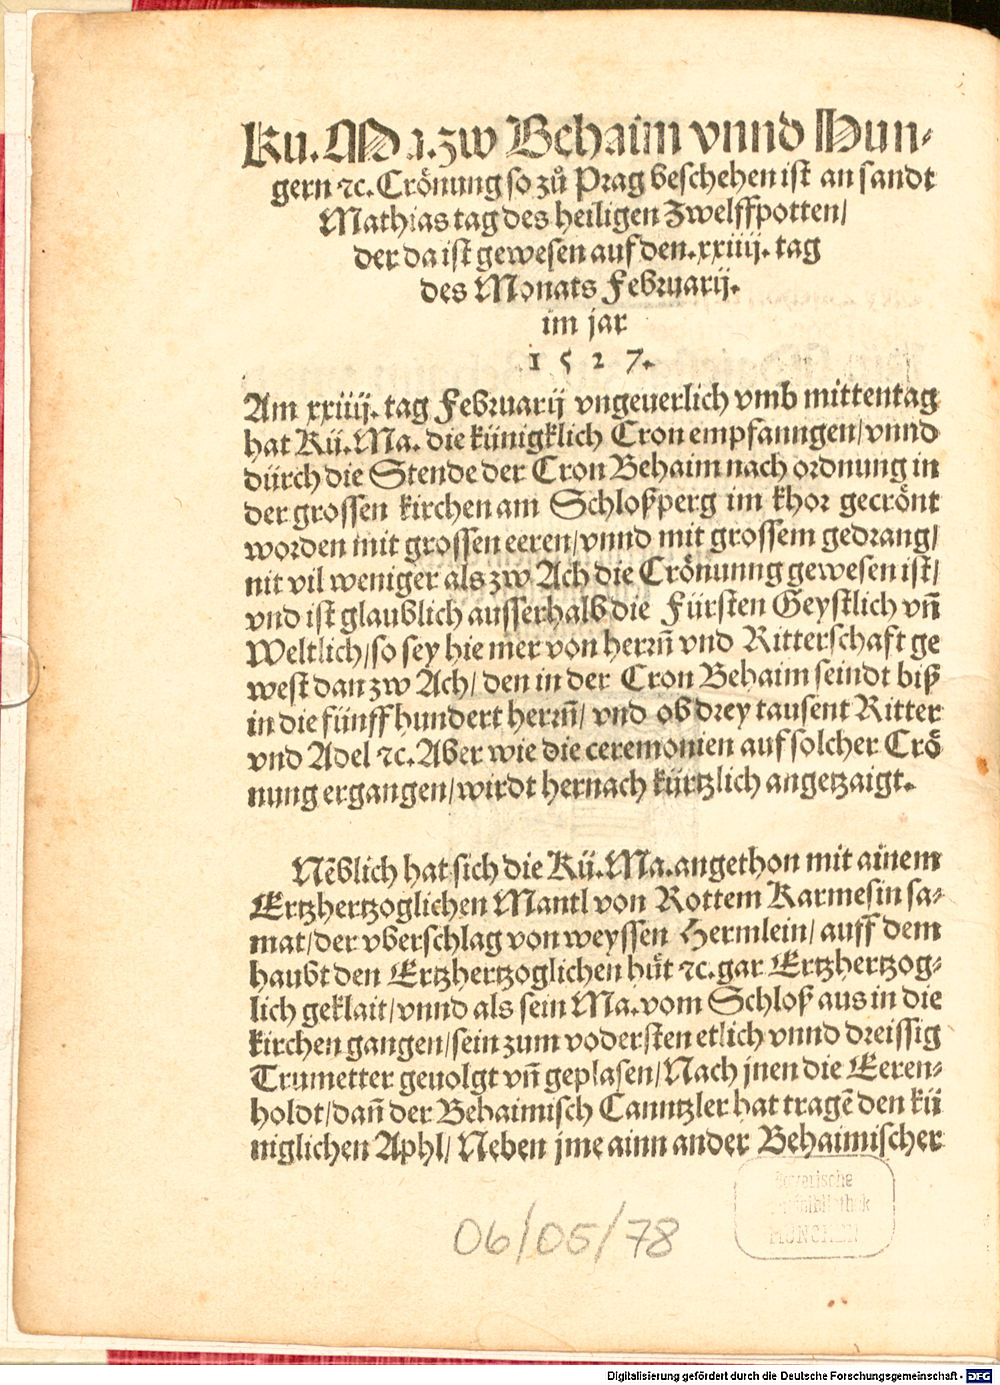 Kü. Ma. zw Behaim vnnd Hun-
gern ⁊c. Crönung so zů Prag beschehen ist an sandt
Mathias tag des heiligen Zwelffpotten/
der da ist gewesen auf den .xxiiij. tag
des Monats Februarij.
im jar
1527.
Am xxiiij. tag Februarij vngeuerlich vmb mittentag
hat Kü. Ma. die künigklich Cron empfanngen/ vnnd
dürch die Stende der Cron Behaim nach ordnung in
der grossen kirchen am Schloßperg im khor gecrönt
worden mit grossen eeren/ vnnd mit grossem gedrang/
nit vil weniger als zw Ach die Crönunng gewesen ist/
vnd ist glaublich ausserhalb die Fürsten Geystlich vñ
Weltlich/ so sey hie mer von herrñ vnd Ritterschaft ge
west dan zw Ach/ den in der Cron Behaim seindt biß
in die fünff hundert herrñ/ vnd ob drey tausent Ritter
vnd Adel ⁊c. Aber wie die ceremonien auf solcher Crö
nung ergangen/ wirdt hernach kürtzlich angetzaigt.
Nẽblich hat sich die Kü. Ma. angethon mit ainem
Ertzhertzoglichen Mantl von Rottem Karmesin sa-
mat/ der vberschlag von weyssen Hermlein/ auff dem
haubt den Ertzhertzoglichen hüt ⁊c. gar Ertzhertzog-
lich geklait/ vnnd als sein Ma. vom Schloß aus in die
kirchen gangen/ sein zum vodersten etlich vnnd dreissig
Trumetter geuolgt vñ geplasen/ Nach jnen die Eeren-
holdt/ dañ der Behaimisch Canntzler hat tragẽ den kü
niglichen Aphl/ Neben jme ainn ander Behaimischer
Bayerische
Staatsbibliothek
MÜNCHEN
06/05/78
Digitalisierung gefördert durch die Deutsche Forschungsgemeinschaft - DFG